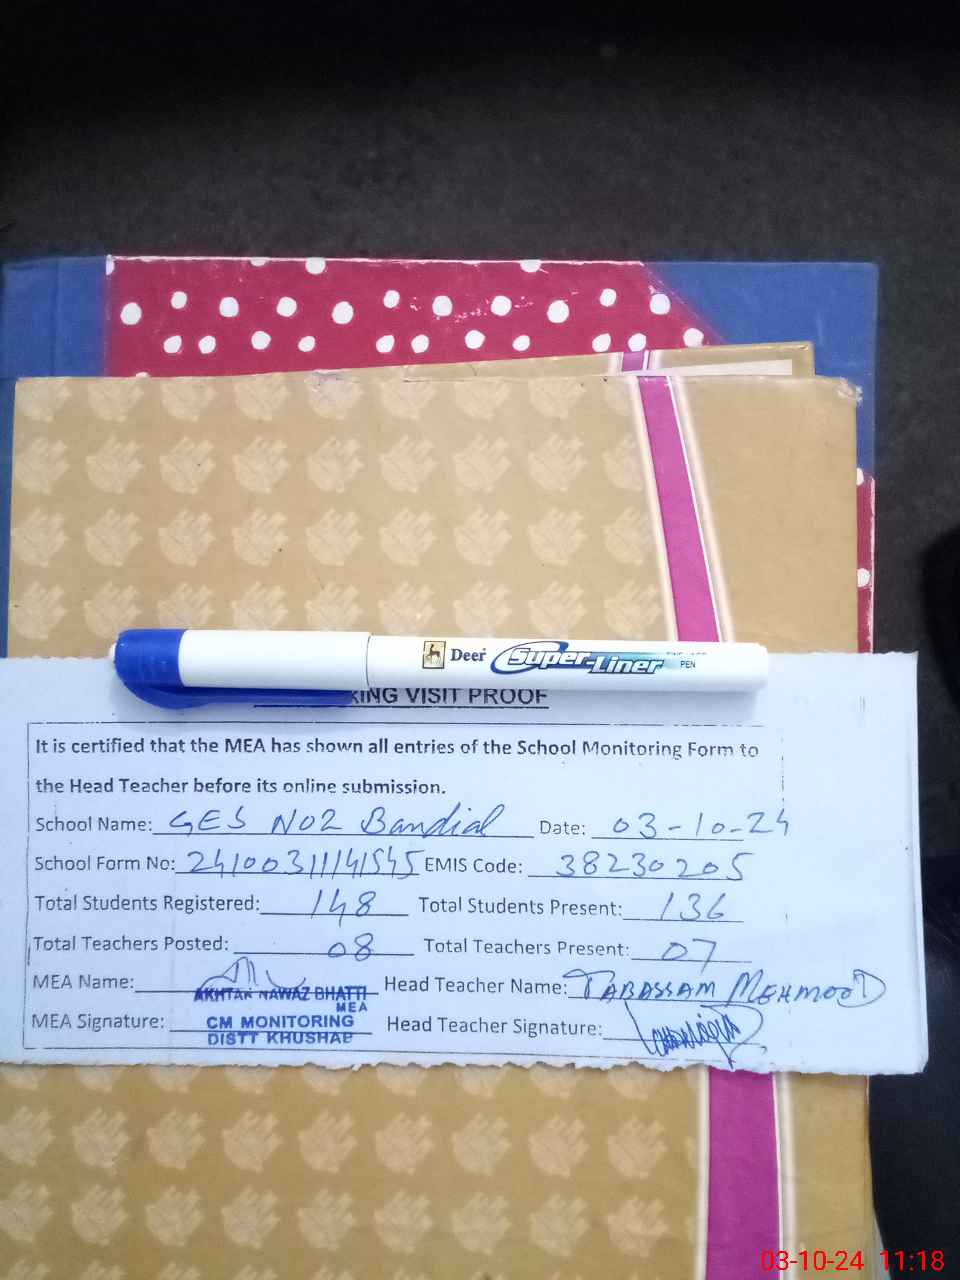 Deer Super-Liner
PEN
KING VISIT PROOF
It is certified that the MEA has shown all entries of the School Monitoring Form to
the Head Teacher before its online submission.
School Name: GES NO2 Bandial Date: 03-10-24
School Form No: 24100311141545 EMIS Code: 38230205
Total Students Registered: 148 Total Students Present: 136
Total Teachers Posted: 08 Total Teachers Present: 07
MEA Name: AKHTAR NAWAZ BHATTI Head Teacher Name: TABASSAM MEHMOOD
MEA
MEA Signature: CM MONITORING Head Teacher Signature:
DISTT KHUSHAB
03-10-24 11:18